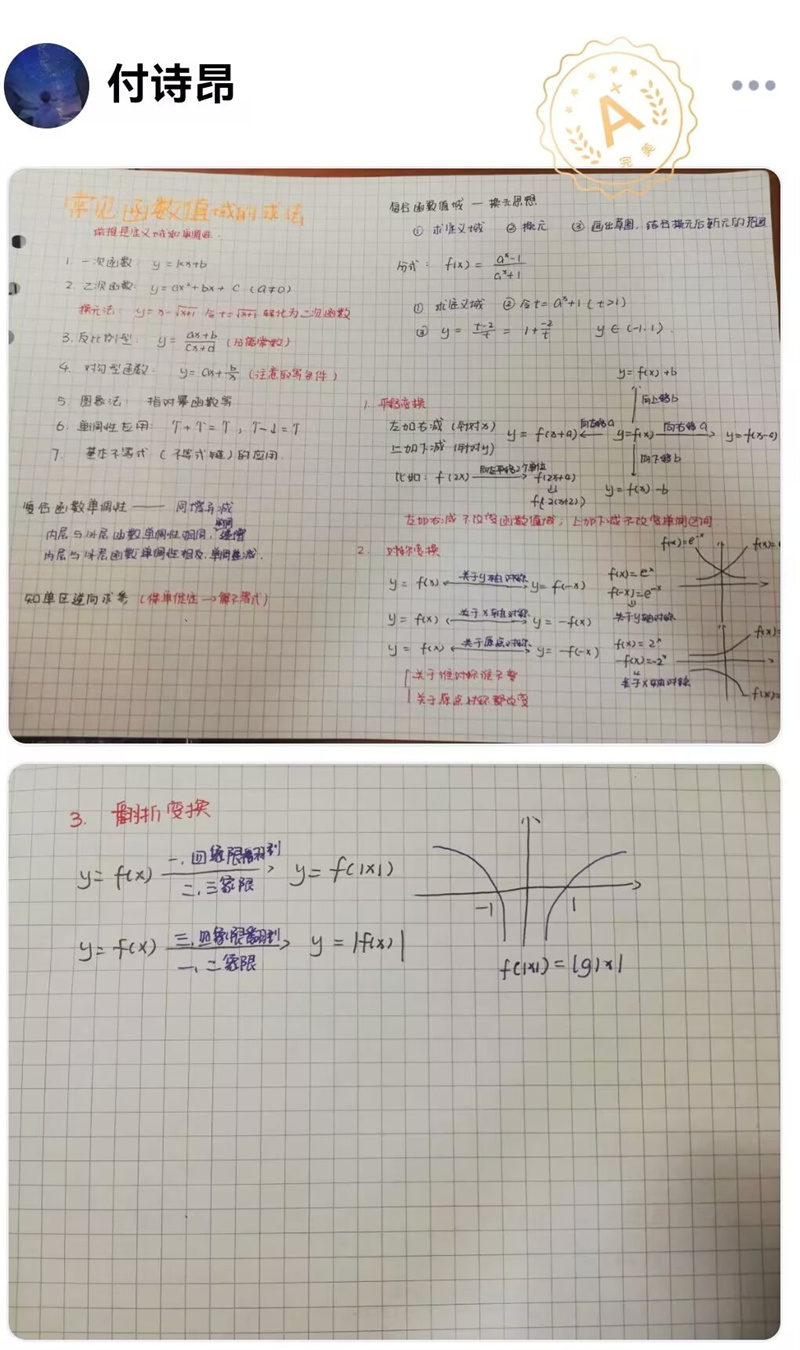 付诗昂
A+
完美
常见函数值域的求法
前提是定义域和单调性.
1. 一次函数: y=kx+b
2. 二次函数: y=ax²+bx+c (a≠0)
换元法: y=x-√x+1 令t=√x+1 转化为二次函数
3. 反比例型: y=ax+b/cx+d (分离常数)
4. 对勾型函数: y=ax+b/x (注意取等条件)
5. 图象法: 指对幂函数等
6. 单调性应用: ↑+↑=↑, ↑-↓=↑
7. 基本不等式 (不等式链) 的应用.
复合函数单调性 —— 同增异减
内层与外层函数单调性相同,递增
内层与外层函数单调性相反,单调递减.
知单区逆向求参 (保单保性→解不等式)
复合函数值域 — 换元思想
① 求定义域 ② 换元 ③ 画出草图,结合换元后新元的范围
分式: f(x)=aˣ-1/aˣ+1
① 求定义域 ② 令t=aˣ+1 (t>1)
③ y=t-2/t=1+-2/t y∈(-1.1).
1. 平移变换
y=f(x)+b
向上移b
左加右减 (针对x)
上加下减 (针对y)
y=f(x+a) 向左移a y=f(x) 向右移a y=f(x-a)
向下移b
y=f(x)-b
比如: f(2x) 向左平移2个单位 f(2x+4)
f(2(x+2))
左加右减不改变函数值域; 上加下减不改变单调区间
2. 对称变换
y=f(x) 关于y轴对称 y=f(-x)
y=f(x) 关于x轴对称 y=-f(x)
y=f(x) 关于原点对称 y=-f(-x)
关于谁对称谁不变
关于原点对称都改变
f(x)=eˣ
f(-x)=e⁻ˣ
关于y轴对称
f(x)=2ˣ
-f(x)=-2ˣ
关于x轴对称
f(x)=e⁻ˣ
f(x)=
f(x)=
f(x)=
3. 翻折变换
y=f(x) 一.四象限翻到 二.三象限 y=f(|x|)
y=f(x) 三.四象限翻到 一.二象限 y=|f(x)|
-1 1
f(|x|)=lg|x|